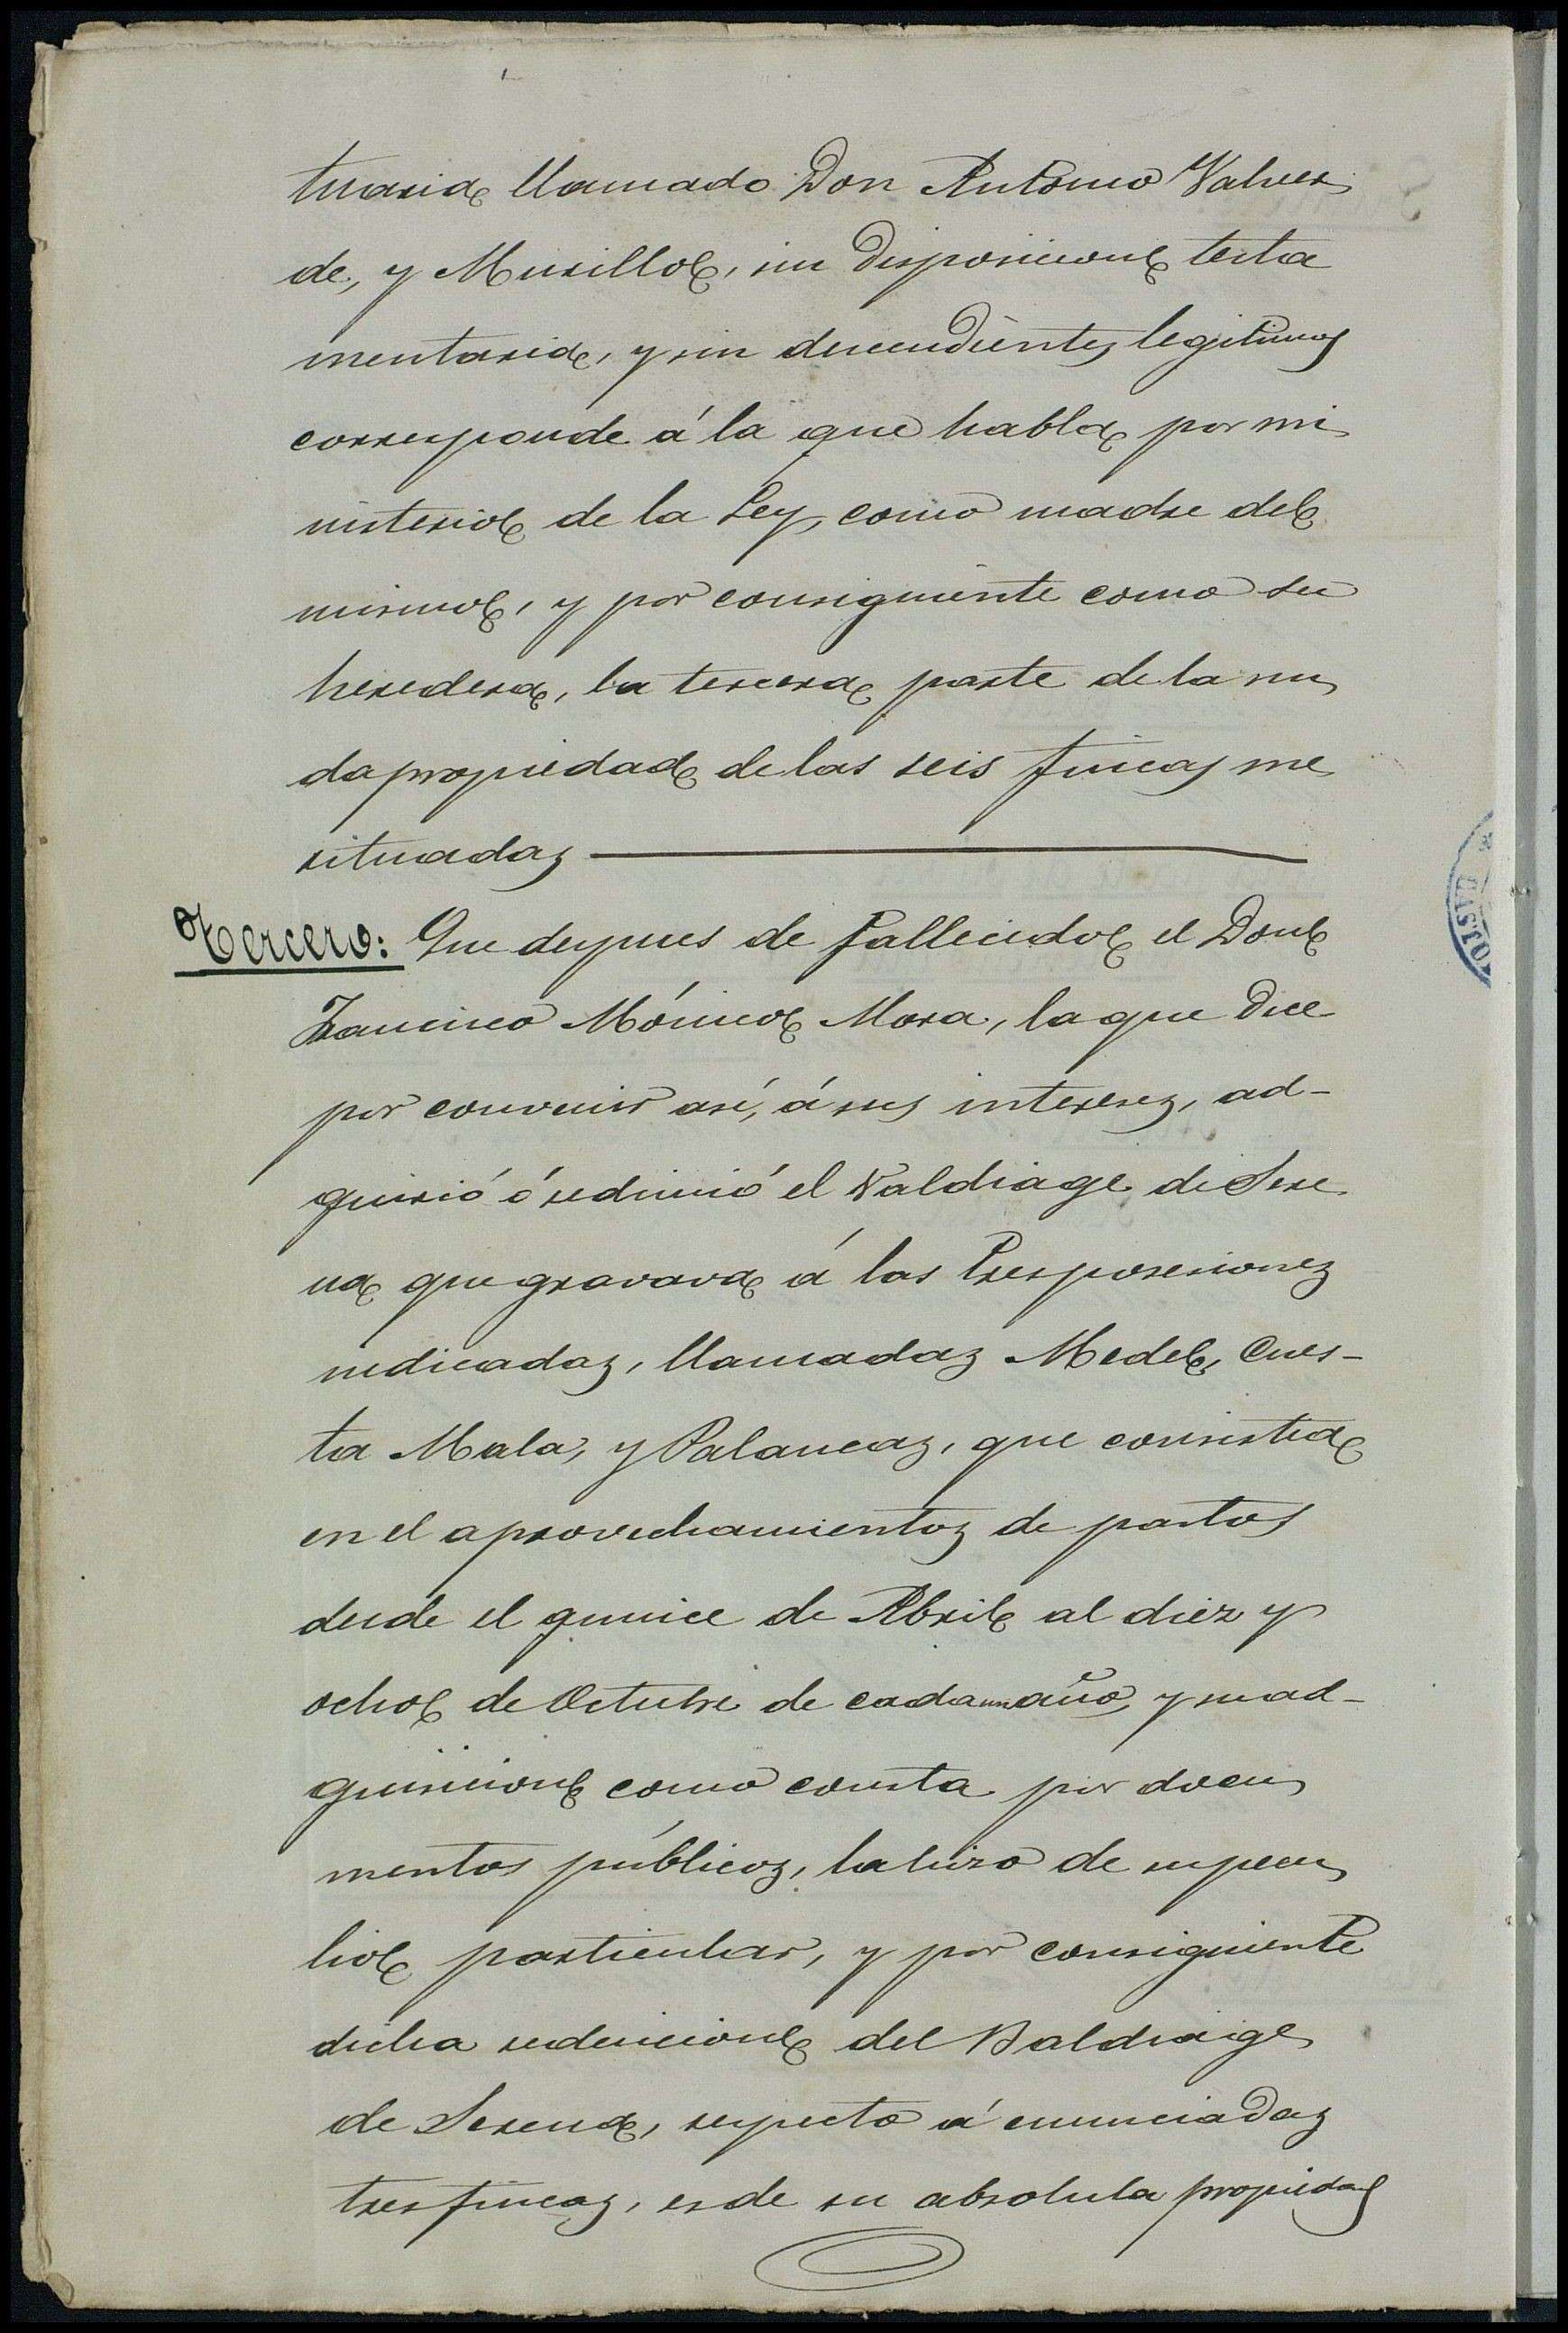 tuaria llamado Don Antonio Valver
de, y Murillo, sin disposicion testa
mentaria, y sin decendientes legitimos
corresponde á la que habla por mi
nisterio de la Ley, como madre del
mismo, y por consiguiente como su
heredera, la tercera parte de la nu
da propiedad de las seis fincas me
situadas
Tercero: Que despues de fallecido el Don
Francisco Mónico Mora, la que dice
por convenir asi, á sus intereses, ad-
quirió ó redimió el Valdiage de Sere
na que gravava á las tres posesiones
indicadas, llamadas Medel, Cues-
ta Mala, y Palancas, que consistia
en el aprovechamientos de pastos
desde el quince de Abril al diez y
ocho de Octubre de cada un año, y su ad-
quisicion como consta por docu
mentos públicos, la hizo de su pecu
lio particular, y por consiguiente
dicha redencion del Baldiage
de Serena, respecto á enunciadas
tres fincas, es de su absoluta propiedad